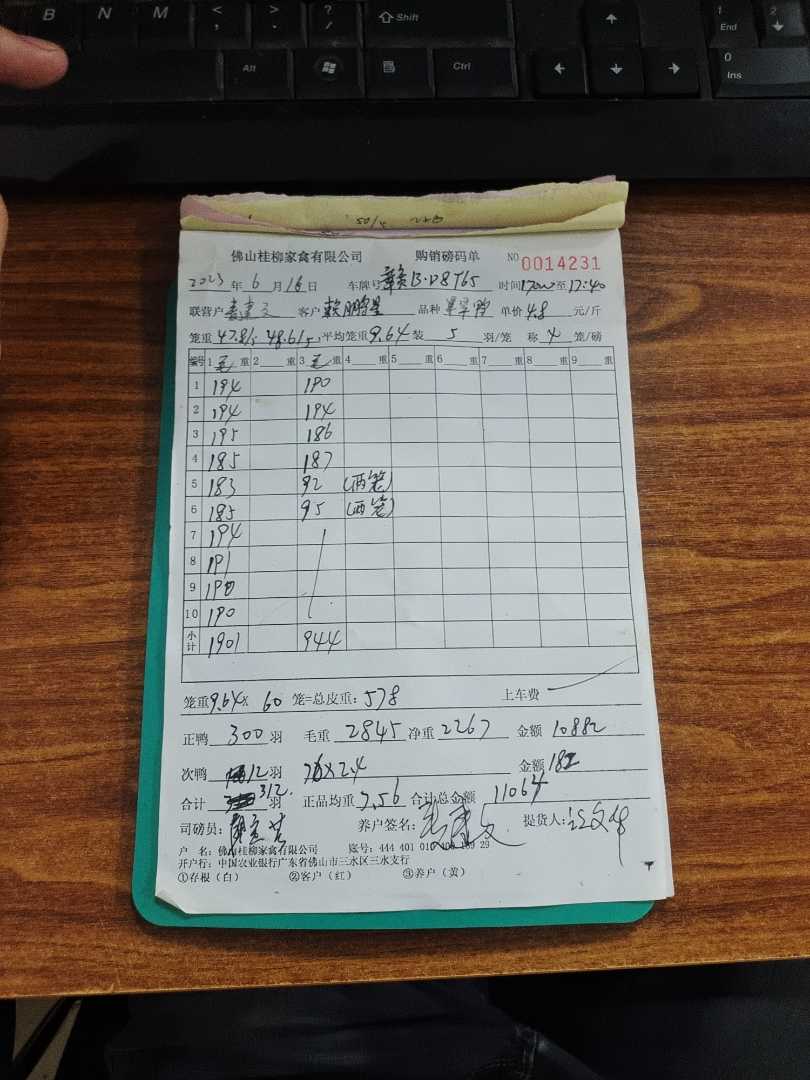 B N M < , > . ? / ⇧ Shift 1 End 2 ↓
Alt Ctrl ← ↓ → ↑ 0 Ins
佛山桂柳家禽有限公司 购销磅码单 NO 0014231
2023 年 6 月 16 日 车牌号 赣B·D8T65 时间 1700 至 17:40
联营户 客户 赖鹏星 品种 单价 4.8 元/斤
笼重 47.8/5 48.6/5 平均笼重 9.64 装 5 羽/笼 称 4 笼/磅
编号 1 毛 重 2 重 3 毛 重 4 重 5 重 6 重 7 重 8 重 9 重
1 194 190
2 194 194
3 195 186
4 185 187
5 183 92 (两笼)
6 185 95 (两笼)
7 194
8 191
9 190
10 190
小计 1901 944
笼重 9.64 × 60 笼=总皮重: 578 上车费
正鸭 300 羽 毛重 2845 净重 2267 金额 10882
次鸭 12 羽 76×2.4 金额 182
合计 312 羽 正品均重 7.56 合计总金额 11064
司磅员: 养户签名: 提货人:
户 名: 佛山桂柳家禽有限公司 账号: 444 401 010 400 29
开户行: 中国农业银行广东省佛山市三水区三水支行
①存根(白) ②客户(红) ③养户(黄)